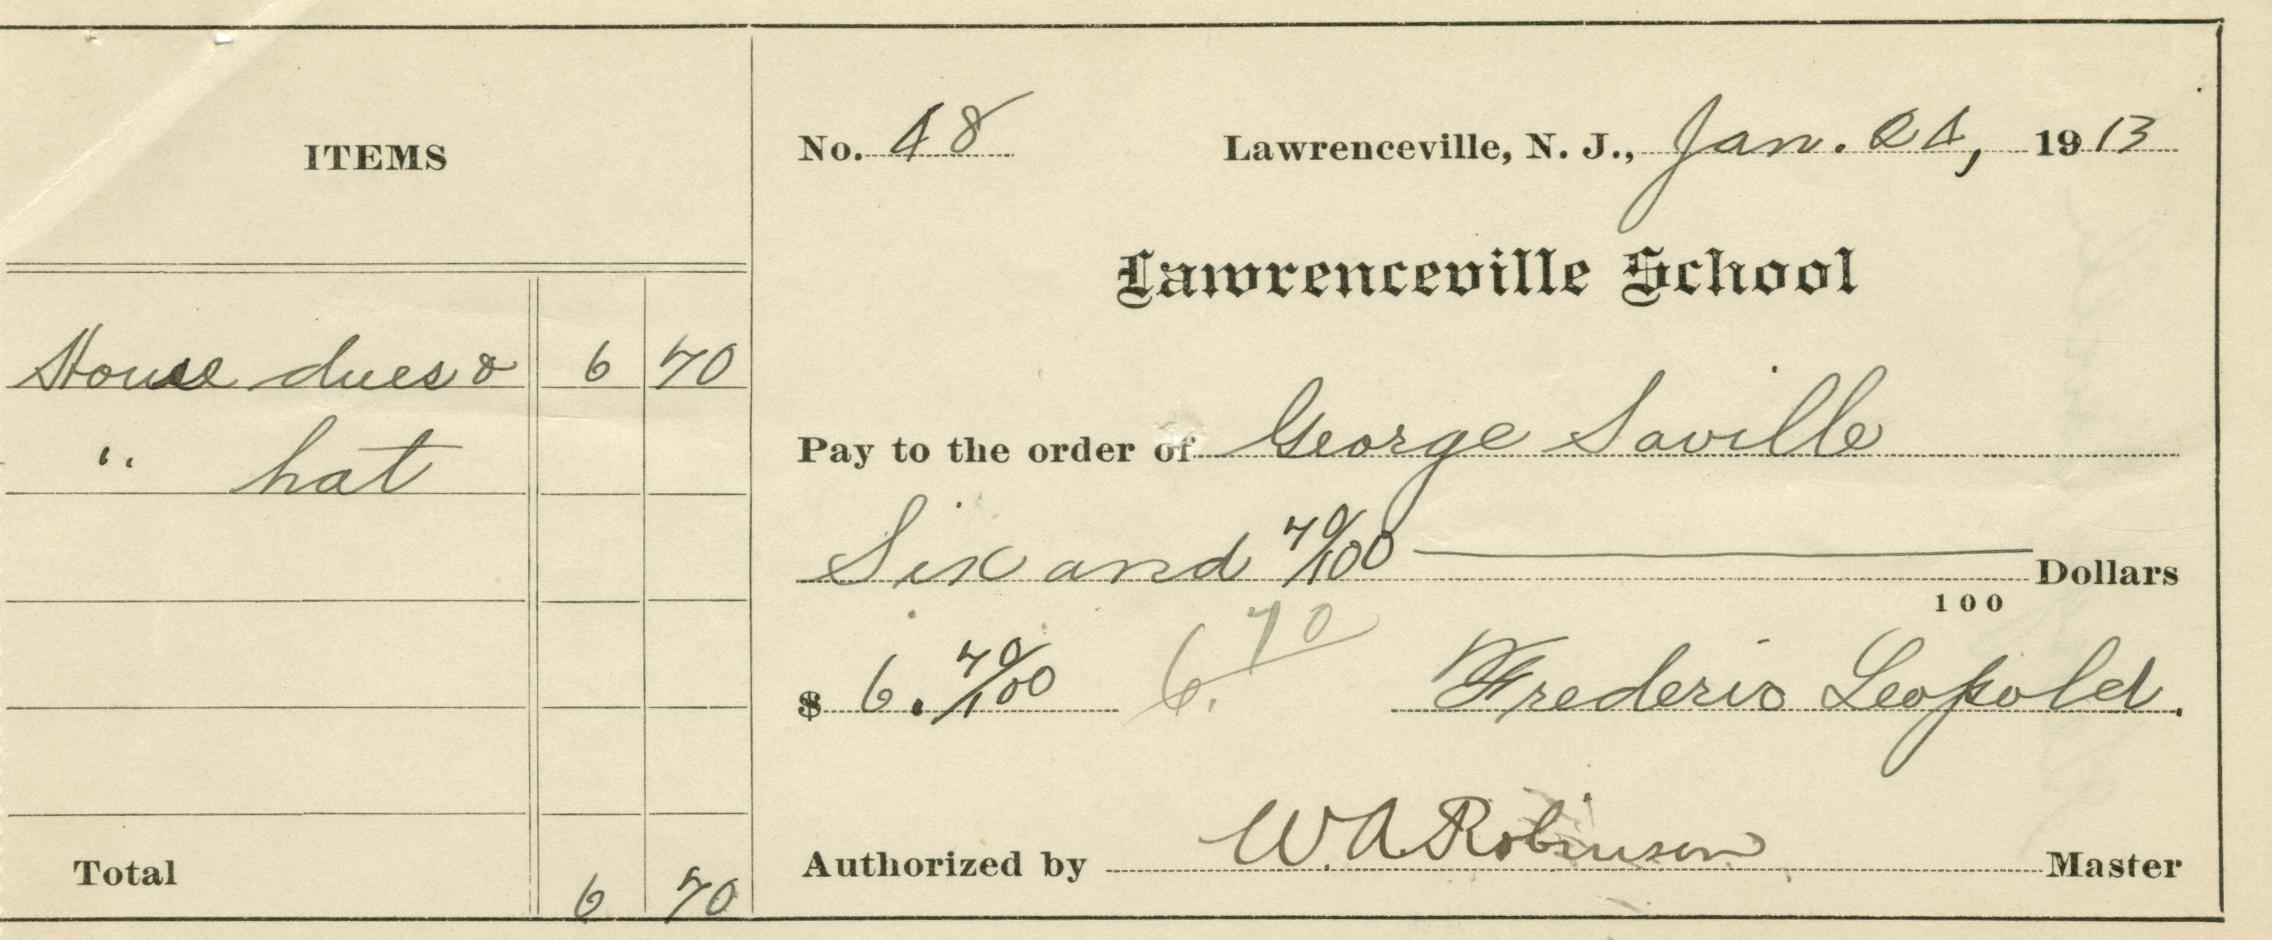 ITEMS
House dues & 6 70
" hat
Total 6 70
No. 48 Lawrenceville, N. J., Jan. 24, 1913
Lawrenceville School
Pay to the order of George Saville
Six and 70/100 Dollars
100
$ 6. 70/100 6. 70 Frederic Leopold.
Authorized by W. A Robinson Master